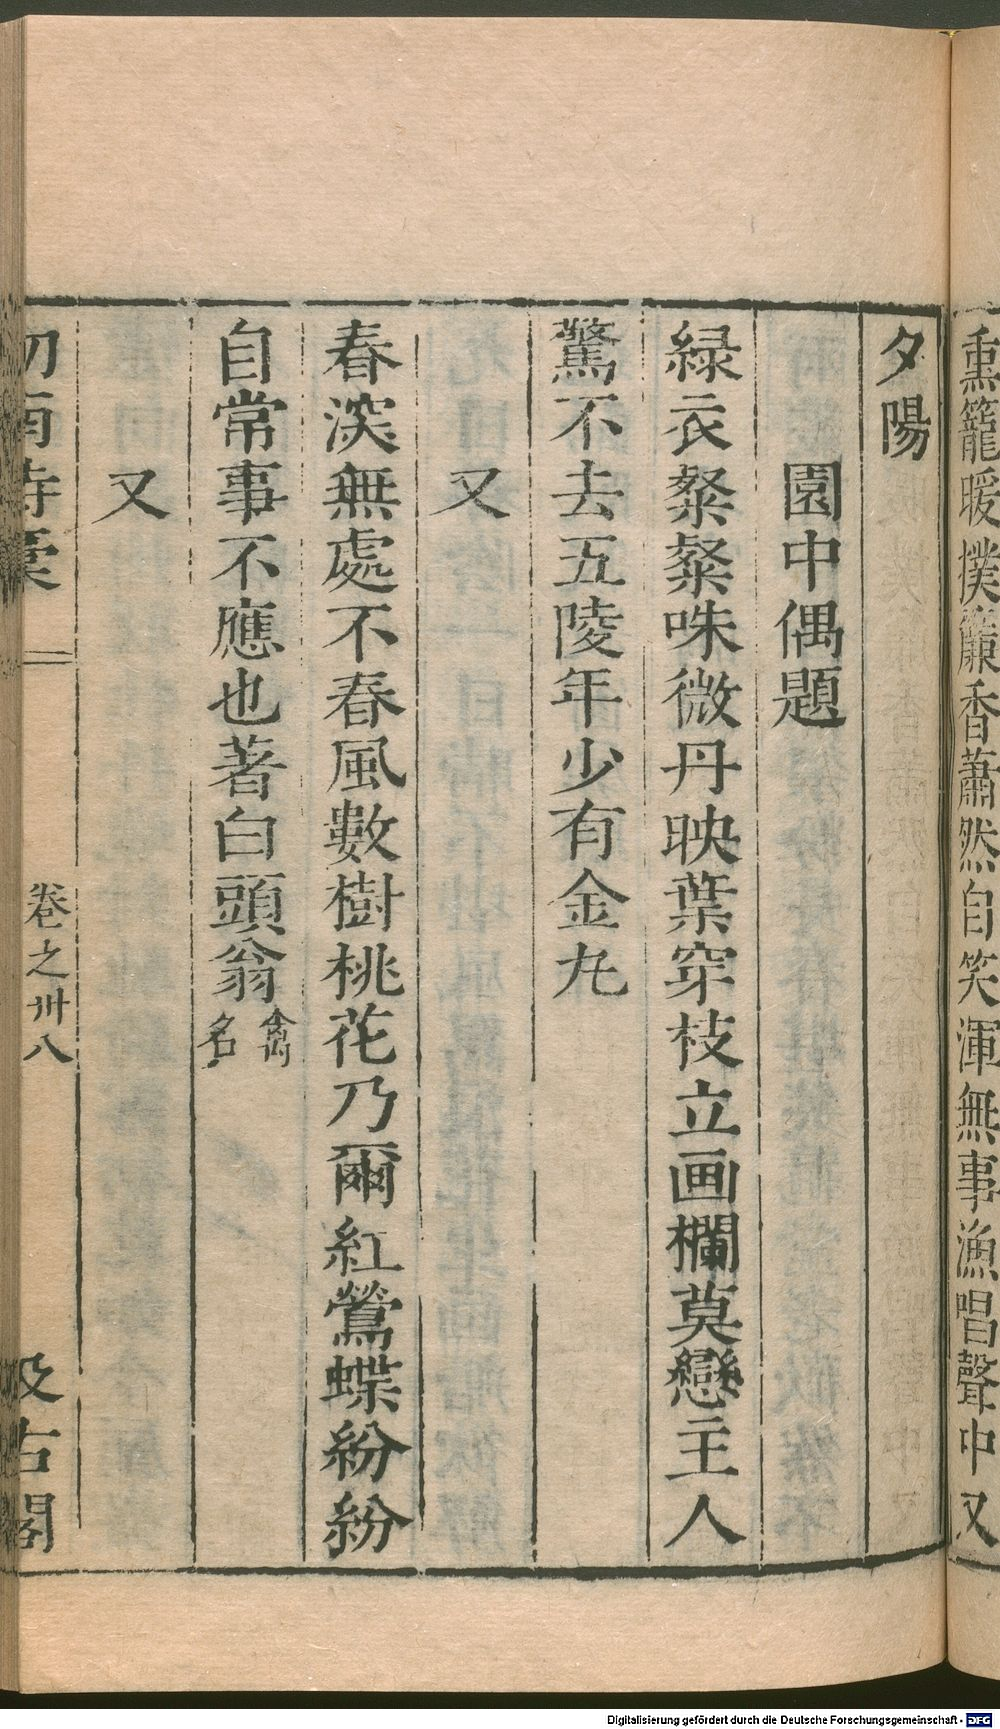 熏籠暖撲簾香蕭然自笑渾無事漁唱聲中又
夕陽
園中偶題
緑衣粲粲咮微丹映葉穿枝立画欄莫戀主人
驚不去五陵年少有金丸
又
春深無處不春風數樹桃花乃爾紅鶯蝶紛紛
自常事不應也著白頭翁禽名
又
劎南詩稾
卷之卅八
汲古閣
Digitalisierung gefördert durch die Deutsche Forschungsgemeinschaft - DFG